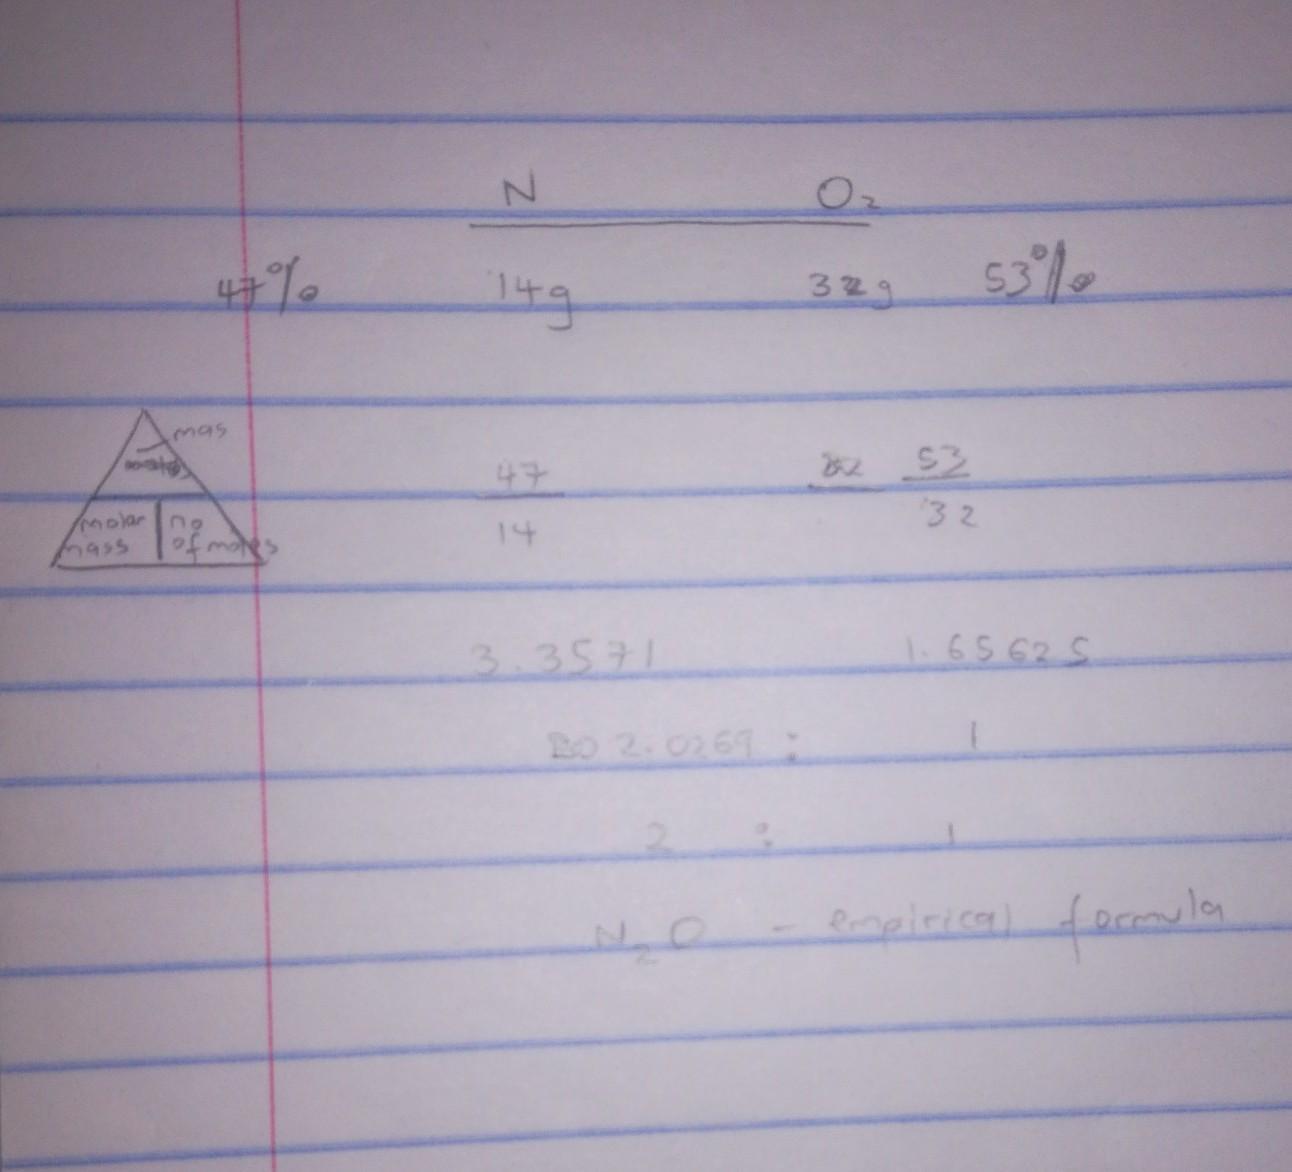 N O₂
47% 14g 32g 53%
mas
molar mass
no of moles
47 53
14 32
3.3571 1.65625
2.0269 : 1
2 : 1
N₂O - empirical formula